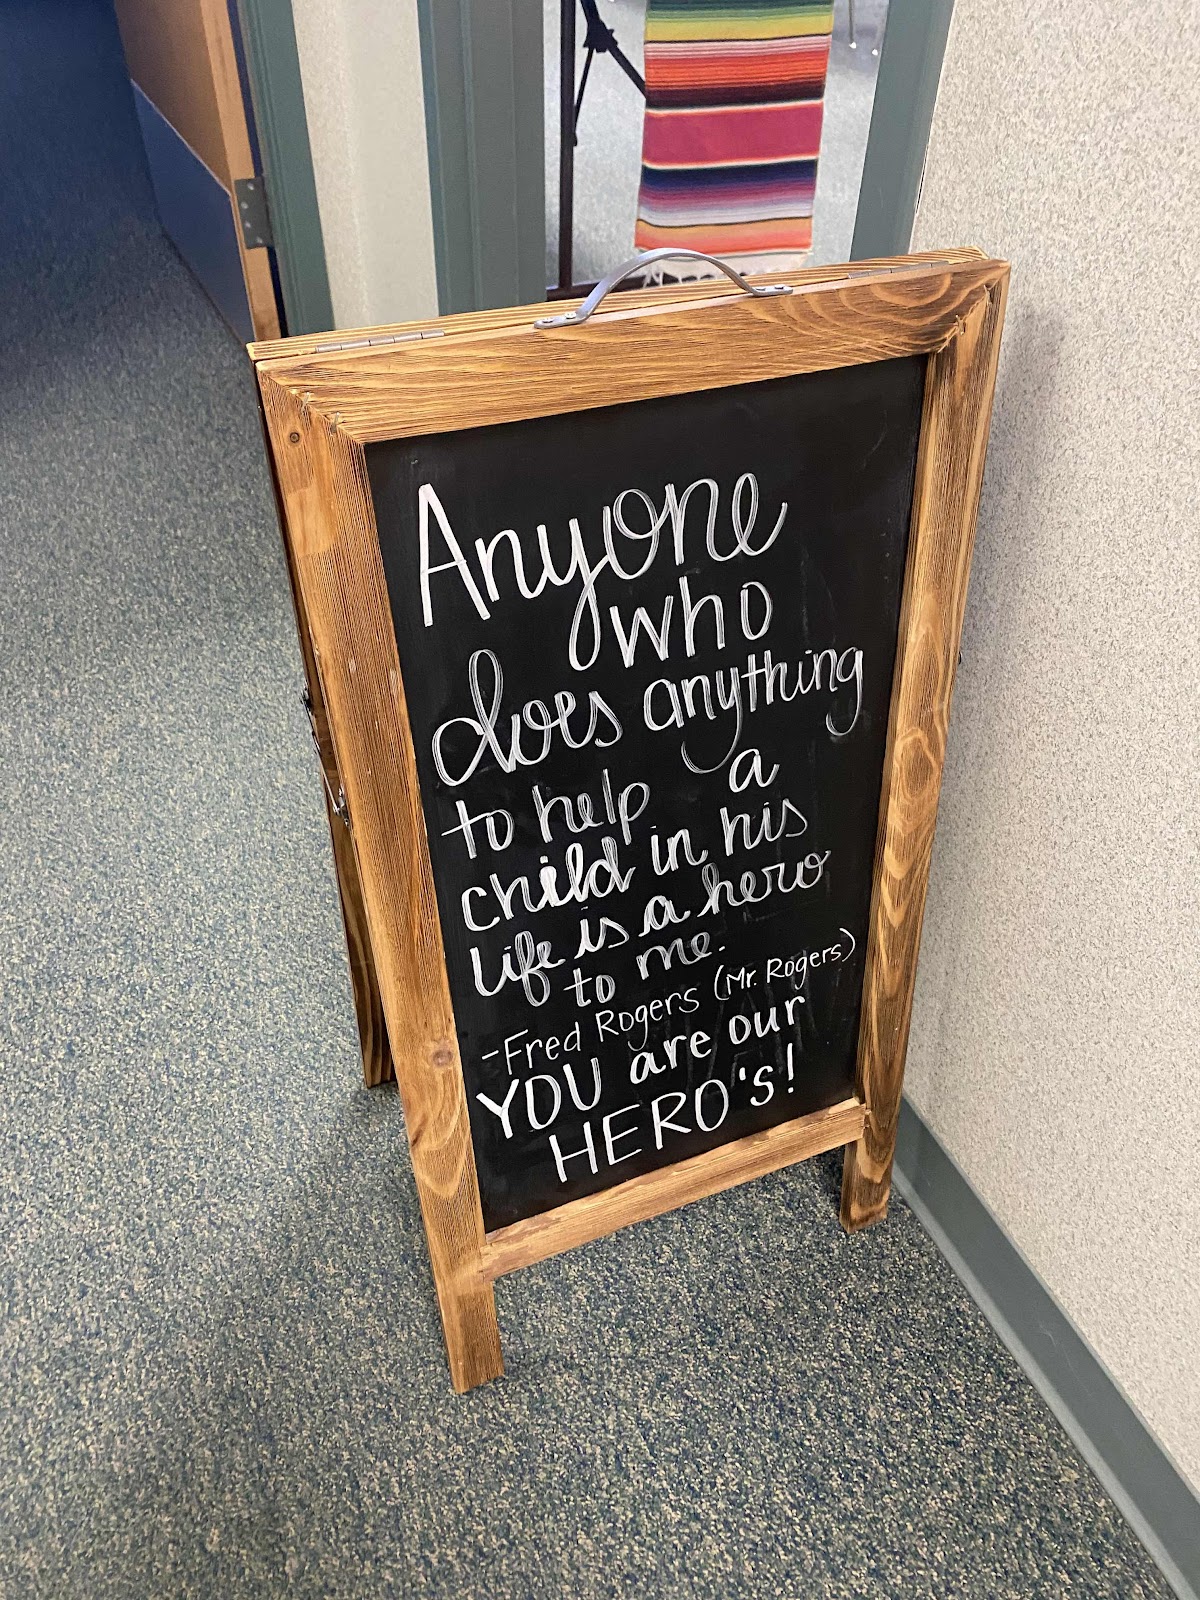 Anyone
who
does anything
to help a
child in his
life is a hero
to me.
-Fred Rogers (Mr. Rogers)
YOU are our
HERO's!